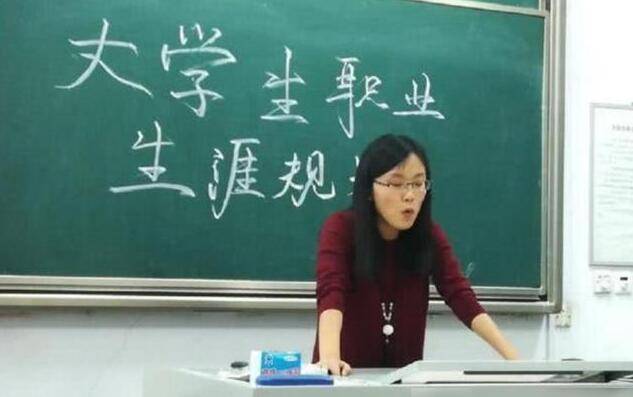 大学生职业
生涯规